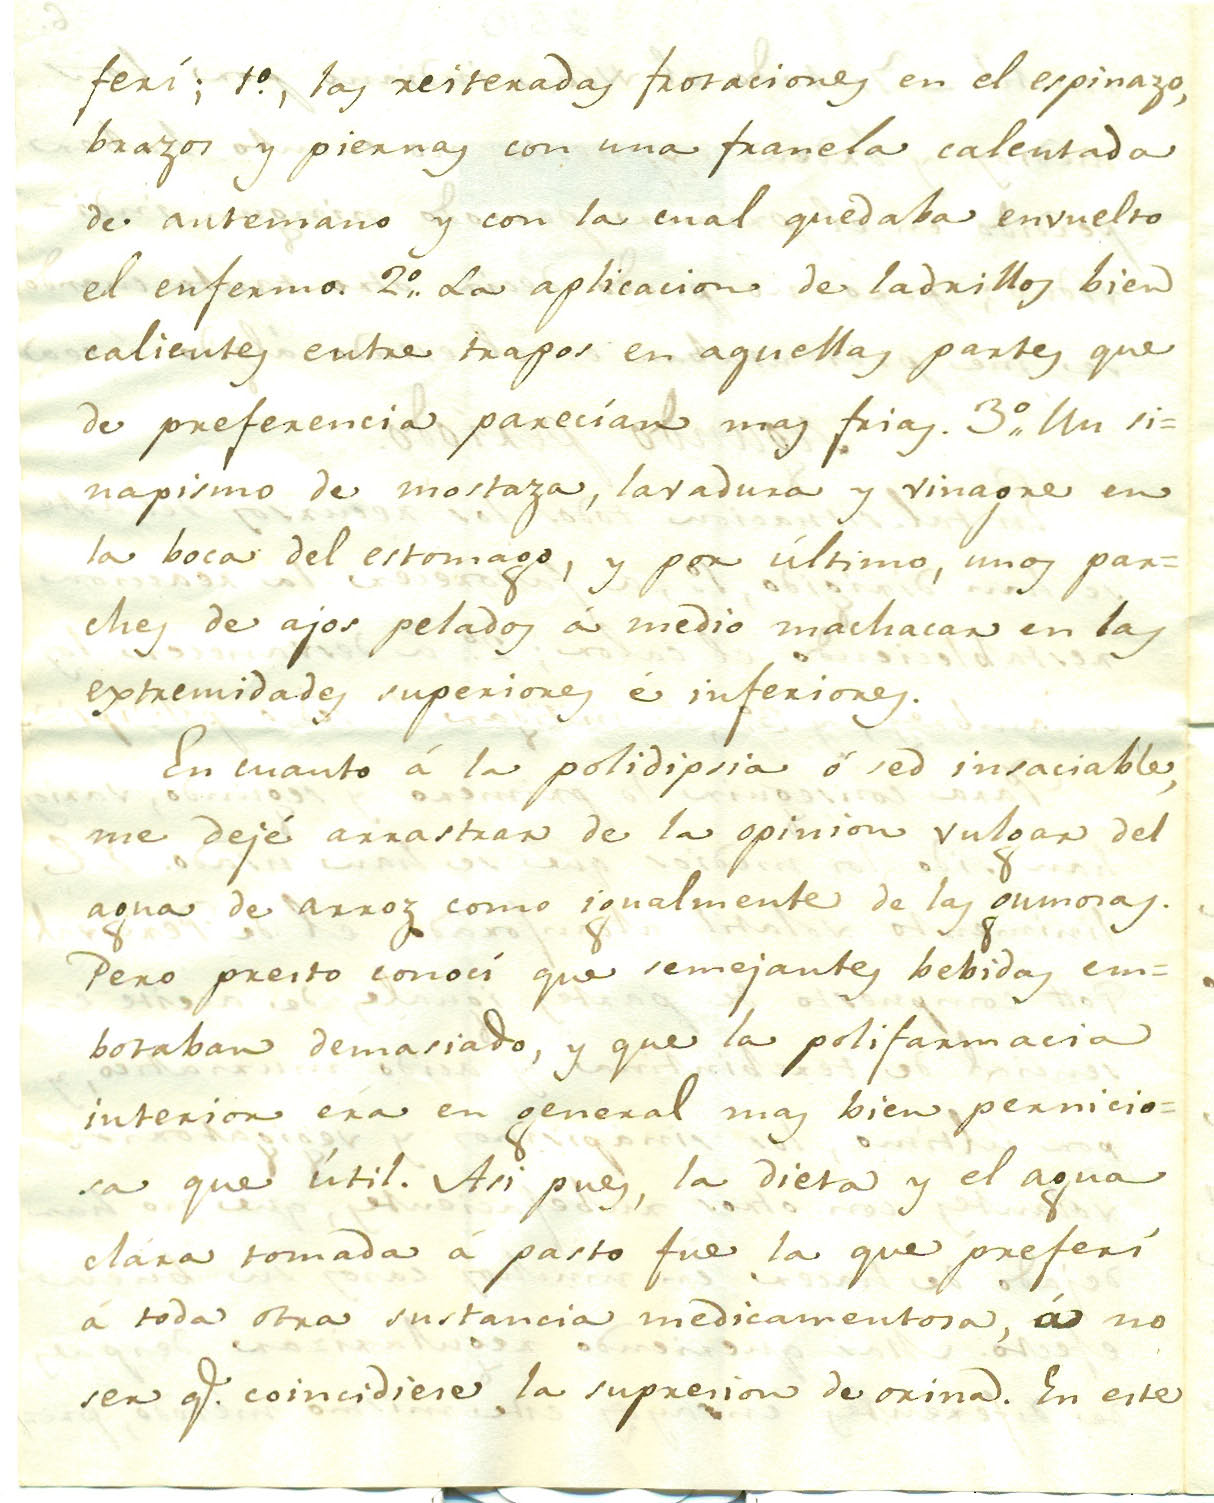 ferí; 1º, las reiteradas frotaciones en el espinazo,
brazos y piernas con una franela calentada
de antemano y con la cual quedaba envuelto
el enfermo. 2º. La aplicacion de ladrillos bien
calientes entre trapos en aquellas partes que
de preferencia parecían mas frias. 3º. Un si=
napismo de mostaza, lavadura y vinagre en
la boca del estomago, y por último, unos par=
ches de ajos pelados á medio machacar en las
extremidades superiores é inferiores.
En cuanto á la polidipsia ó sed insaciable,
me dejé arrastrar de la opinion vulgar del
agua de arroz como igualmente de las gumosas.
Pero presto conocí que semejantes bebidas em=
botaban demasiado, y que la polifarmacia
interior era en general mas bien pernicio=
sa que útil. Asi pues, la dieta y el agua
clára tomada á pasto fue la que preferí
á toda otra sustancia medicamentosa, á no
ser q. coincidiese la supresion de orina. En este